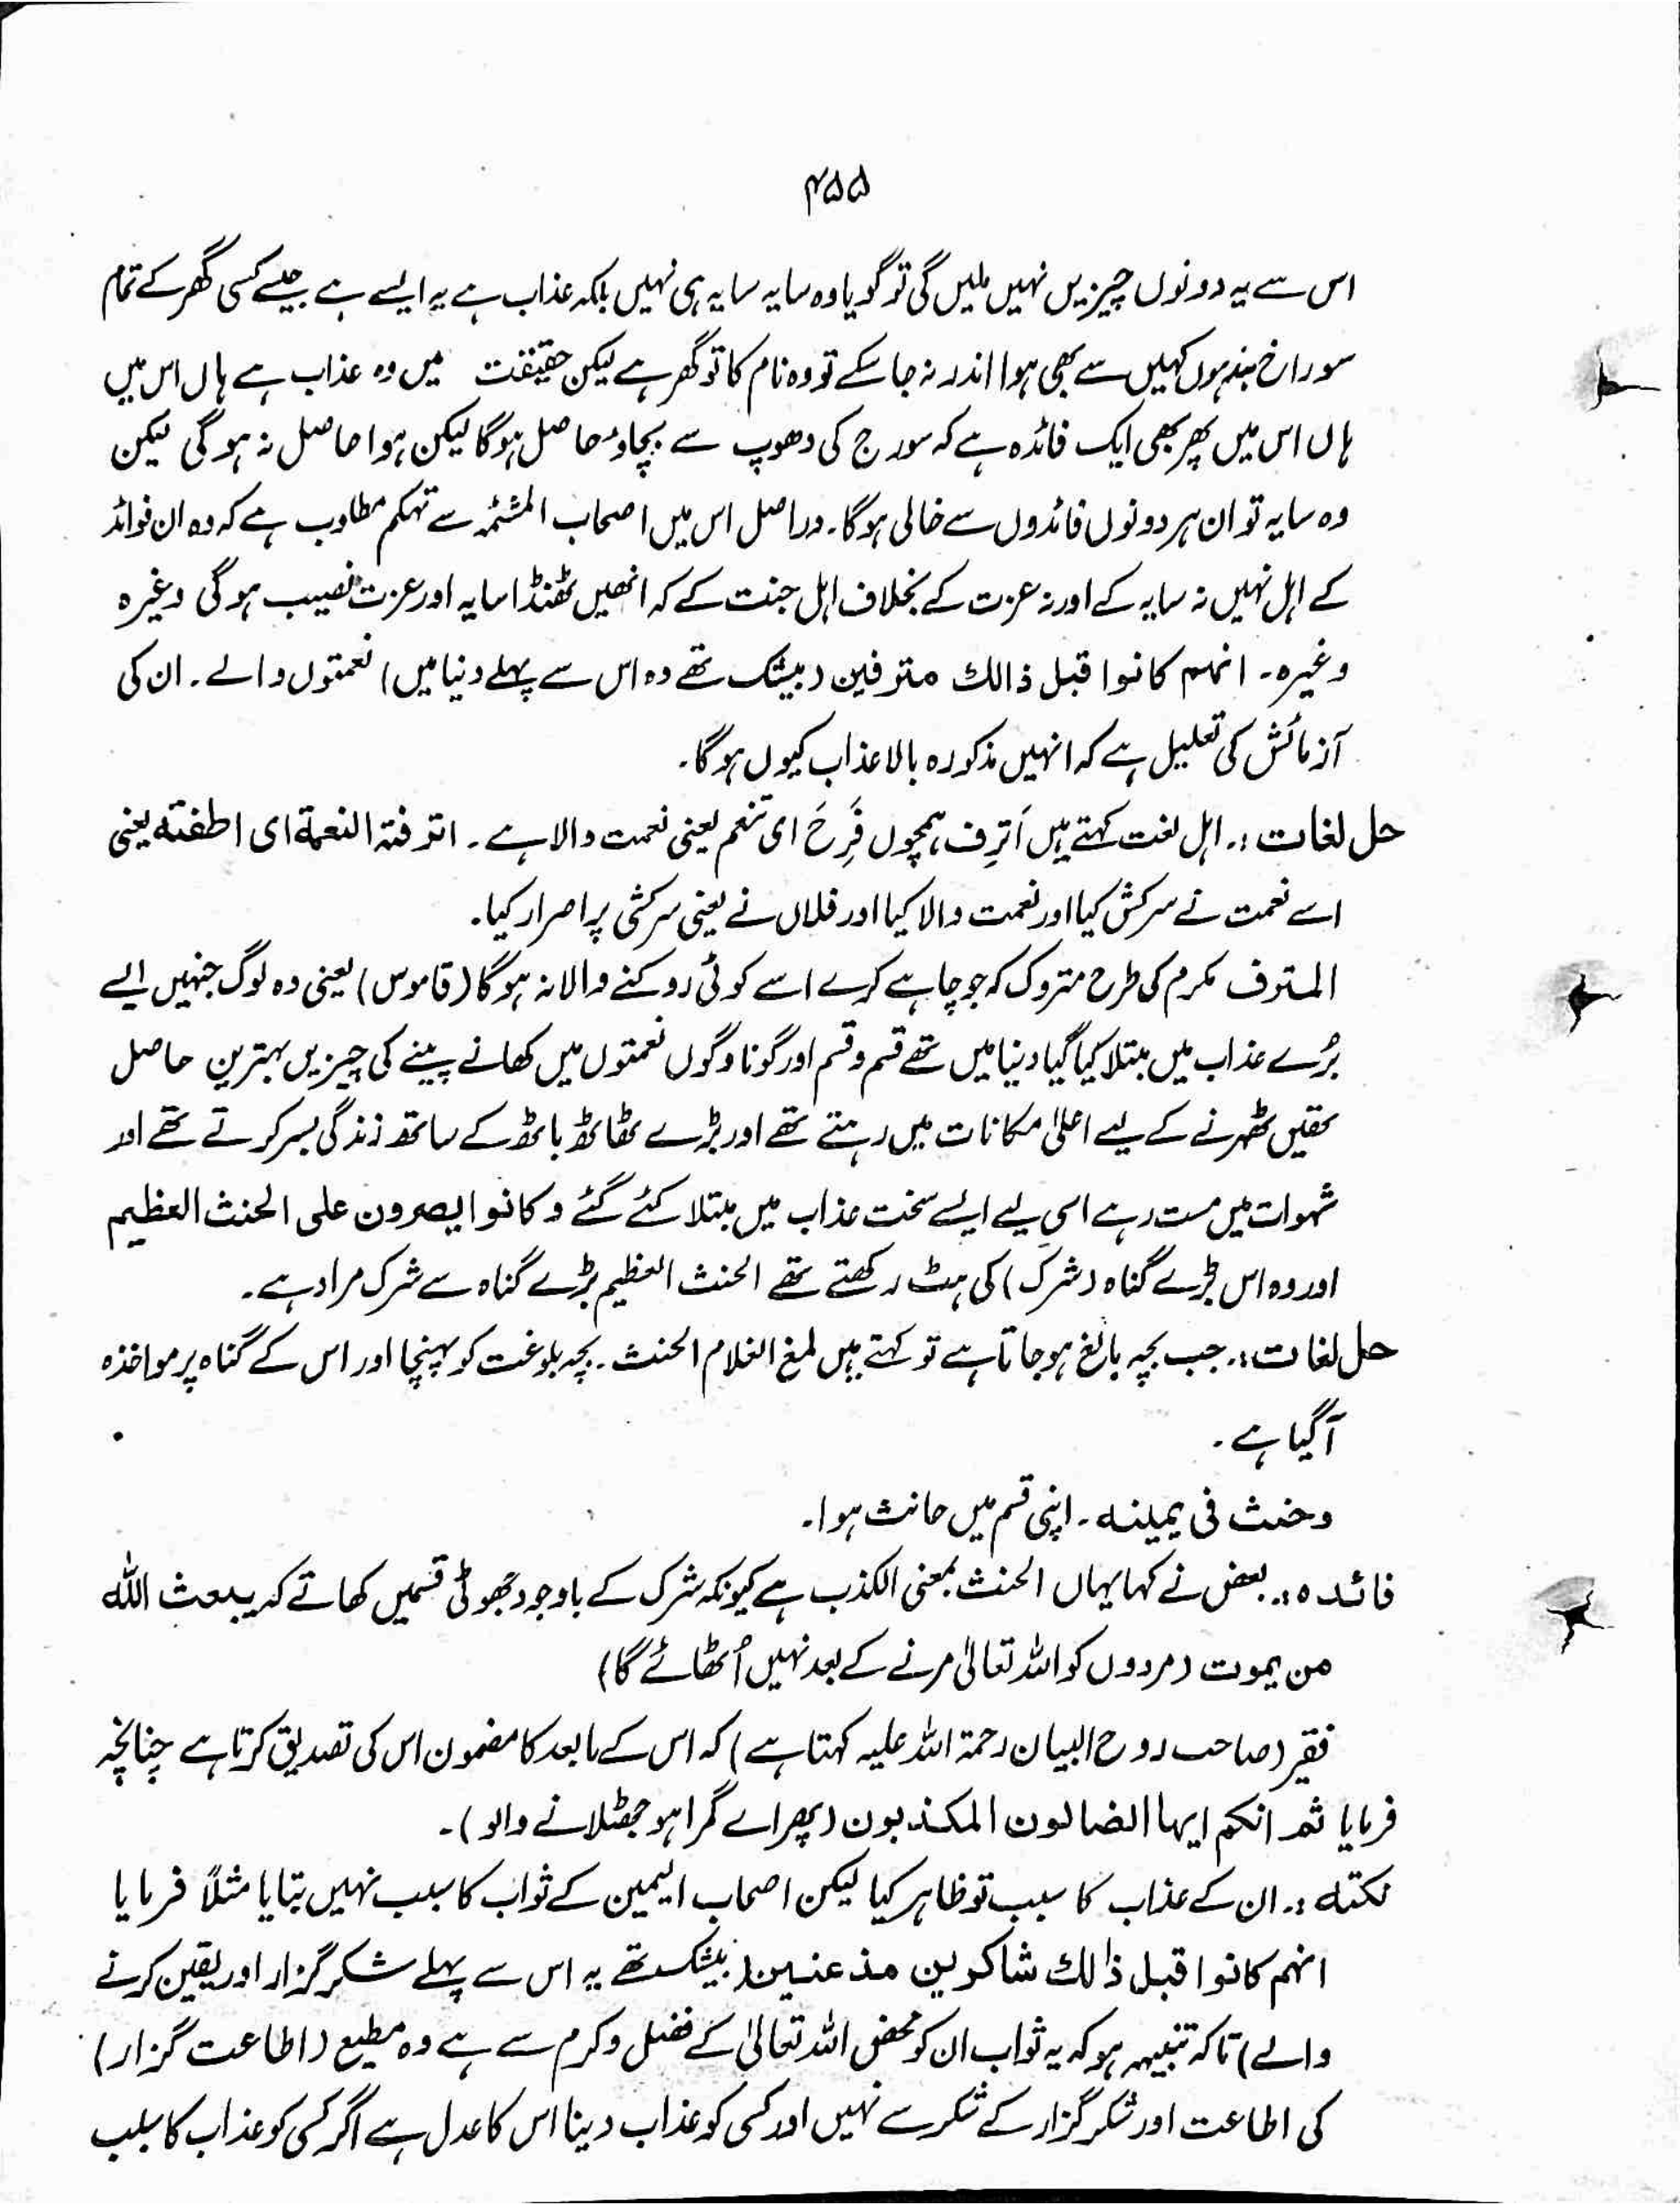 ۴۵۵
اس سے یہ دونوں چیزیں نہیں ملیں گی تو گویا وہ سایہ سایہ ہی نہیں بلکہ عذاب ہے یہ ایسے ہے جیسے کسی گھر کے تمام
سوراخ بند ہوں کہیں سے بھی ہوا اندر نہ جا سکے تو وہ نام کا تو گھر ہے لیکن حقیقت میں وہ عذاب ہے ہاں اس میں
ہاں اس میں پھر بھی ایک فائدہ ہے کہ سورج کی دھوپ سے بچاؤ حاصل ہوگا لیکن ہوا حاصل نہ ہو گی لیکن
وہ سایہ تو ان ہر دونوں فائدوں سے خالی ہوگا۔ دراصل اس میں اصحاب المشئمہ سے تہکم مطلوب ہے کہ وہ ان فوائد
کے اہل نہیں نہ سایہ کے اور نہ عزت کے بخلاف اہل جنت کے کہ انھیں ٹھنڈا سایہ اور عزت نصیب ہو گی وغیرہ
وغیرہ۔ انہم کانوا قبل ذالک مترفین (بیشک تھے وہ اس سے پہلے دنیا میں) نعمتوں والے۔ ان کی
آزمائش کی تعلیل ہے کہ انہیں مذکورہ بالا عذاب کیوں ہوگا۔
حل لغات :۔ اہل لغت کہتے ہیں اَترِف ہمچوں فَرِحَ ای تنعم یعنی نعمت والا ہے۔ اترفتہ النعمۃ ای اطفتہ یعنی
اسے نعمت نے سرکش کیا اور نعمت والا کیا اور فلاں نے یعنی سرکشی پر اصرار کیا۔
المترف مکرم کی طرح متروک کہ جو چاہے کرے اسے کوئی روکنے والا نہ ہوگا (قاموس) یعنی وہ لوگ جنہیں ایسے
بُرے عذاب میں مبتلا کیا گیا دنیا میں تھے قسم و قسم اور گوناوگوں نعمتوں میں کھانے پینے کی چیزیں بہترین حاصل
تھیں ٹھہرنے کے لیے اعلیٰ مکانات میں رہتے تھے اور بڑے ٹھاٹھ باٹھ کے ساتھ زندگی بسر کرتے تھے اور
شہوات میں مست رہے اسی لیے ایسے سخت عذاب میں مبتلا کئے گئے و کانوا یصرون علی الحنث العظیم
اور وہ اس بڑے گناہ (شرک) کی ہٹ رکھتے تھے الحنث العظیم بڑے گناہ سے شرک مراد ہے۔
حل لغات :۔ جب بچہ بالغ ہو جاتا ہے تو کہتے ہیں لمغ الغلام الحنث۔ بچہ بلوغت کو پہنچا اور اس کے گناہ پر مواخذہ
آگیا ہے۔
وحنث فی یمینہ۔ اپنی قسم میں حانث ہوا۔
فائدہ :۔ بعض نے کہا یہاں الحنث بمعنی الکذب ہے کیونکہ شرک کے باوجود جھوٹی قسمیں کھاتے کہ یبعث اللہ
من یموت (مردوں کو اللہ تعالیٰ مرنے کے بعد نہیں اُٹھائے گا)
فقیر (صاحب روح البیان رحمۃ اللہ علیہ کہتا ہے) کہ اس کے مابعد کا مضمون اس کی تصدیق کرتا ہے چنانچہ
فرمایا ثم انکم ایہا الضالون المکذبون (پھر اے گمراہو جھٹلانے والو)۔
نکتہ :۔ ان کے عذاب کا سبب تو ظاہر کیا لیکن اصحاب الیمین کے ثواب کا سبب نہیں بتایا مثلاً فرمایا
انہم کانوا قبل ذٰلک شاکرین مذعنین (بیشک تھے یہ اس سے پہلے شکر گزار اور یقین کرنے
والے) تاکہ تنبیہہ ہو کہ یہ ثواب ان کو محض اللہ تعالیٰ کے فضل و کرم سے ہے وہ مطیع (اطاعت گزار)
کی اطاعت اور شکر گزار کے شکر سے نہیں اور کسی کو عذاب دینا اس کا عدل ہے اگر کسی کو عذاب کا سبب